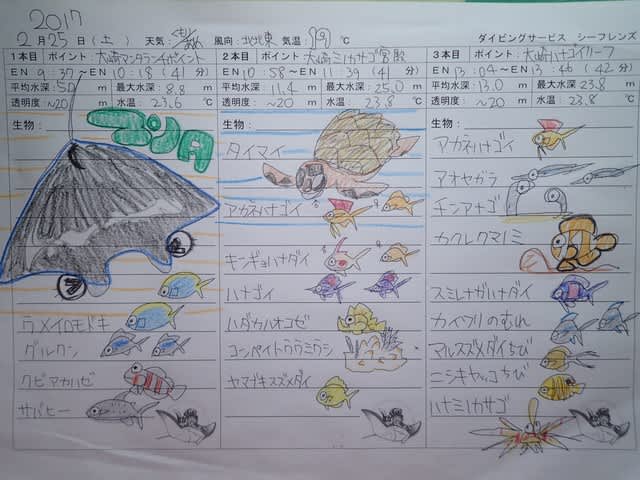 2017
2月25日(土) 天気: 風向: 北北東 気温: 19℃ ダイビングサービス シーフレンズ
1本目 ポイント 大崎マンタランチポイント
EN 9:37~10:18(41分)
平均水深: 5.0m 最大水深: 8.8m
透明度: ~20m 水温: 23.6℃
生物:
マンタ
ウメイロモドキ
グルクン
クビアカハゼ
サバヒー
2本目 ポイント 大崎ミカサゴ宮殿
EN 10:58~11:39(41分)
平均水深: 11.4m 最大水深: 25.0m
透明度: ~20m 水温: 23.8℃
生物:
タイマイ
アカネハナゴイ
キンギョハナダイ
ハナゴイ
ハダカハオコゼ
コンペイトウウミウシ
ヤマブキスズメダイ
3本目 ポイント 大崎ハナゴイリーフ
EN 13:04~EN 13:46(42分)
平均水深: 13.0m 最大水深: 23.8m
透明度: ~20m 水温: 23.8℃
生物:
アカネハナゴイ
アオヤガラ
チンアナゴ
カクレクマノミ
スミレナガハナダイ
カイワリのむれ
マルスズメダイちび
ニシキヤッコちび
ハナミノカサゴ